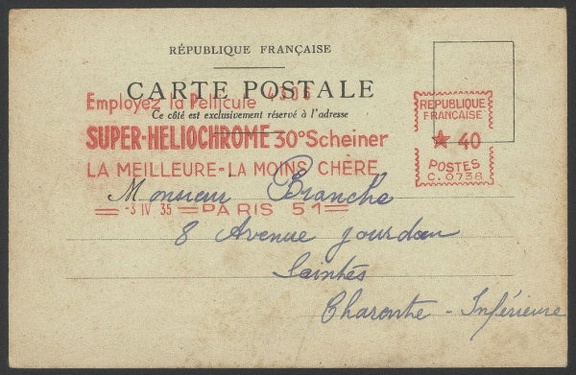 RÉPUBLIQUE FRANÇAISE
CARTE POSTALE
Employez la Pellicule 4306
Ce côté est exclusivement réservé à l'adresse
SUPER-HELIOCHROME 30° Scheiner
LA MEILLEURE-LA MOINS CHÈRE
RÉPUBLIQUE
FRANÇAISE
★ 40
POSTES
C.0738
Monsieur Branche
-3 IV 35 PARIS 51
8 Avenue Jourdan
Saintes
Charente - Inférieure